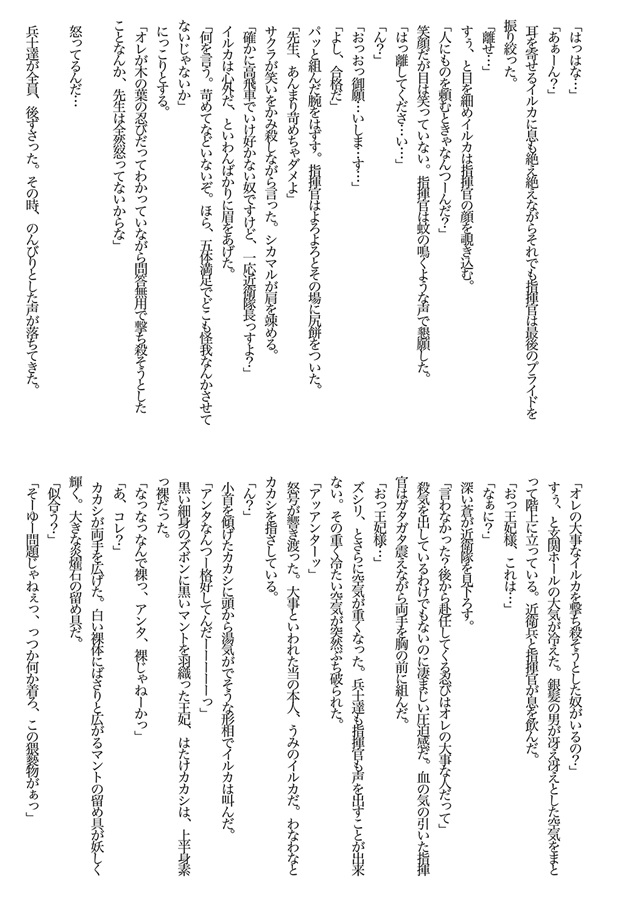 「はっはな…」
「あぁーん？」
耳を寄せるイルカに息も絶え絶えながらそれでも指揮官は最後のプライドを
振り絞った。
「離せ…」
すぅ、と目を細めイルカは指揮官の顔を覗き込む。
「人にものを頼むときゃなんつーんだ？」
笑顔だが目は笑っていない。指揮官は蚊の鳴くような声で懇願した。
「はっ離してくださ…い…」
「ん？」
「おっおっ御願…いしま…す…」
「よし、合格だ」
パッと組んだ腕をはずす。指揮官はよろよろとその場に尻餅をついた。
「先生、あんまり苛めちゃダメよ」
サクラが笑いをかみ殺しながら言った。シカマルが肩を竦める。
「確かに高飛車でいけ好かない奴ですけど、一応近衛隊長っすよ？」
イルカは心外だ、といわんばかりに眉をあげた。
「何を言う。苛めてなどいないぞ。ほら、五体満足でどこも怪我なんかさせて
ないじゃないか」
にっこりとする。
「オレが木の葉の忍びだってわかっていながら問答無用で撃ち殺そうとした
ことなんか、先生は全然怒ってないからな」
怒ってるんだ…
兵士達が全員、後ずさった。その時、のんびりとした声が落ちてきた。
「オレの大事なイルカを撃ち殺そうとした奴がいるの？」
すぅ、と玄関ホールの大気が冷えた。銀髪の男が冴え冴えとした空気をまと
って階上に立っている。近衛兵と指揮官が息を飲んだ。
「おっ王妃様、これは…」
「なぁに？」
深い蒼が近衛隊を見下ろす。
「言わなかった？後から赴任してくる忍びはオレの大事な人だって」
殺気を出しているわけでもないのに凄まじい圧迫感だ。血の気の引いた指揮
官はガタガタ震えながら両手を胸の前に組んだ。
「おっ王妃様…」
ズシリ、とさらに空気が重くなった。兵士達も指揮官も声を出すことが出来
ない。その重く冷たい空気が突然ぶち破られた。
「アッアンターッ」
怒号が響き渡った。大事といわれた当の本人、うみのイルカだ。わなわなと
カカシを指さしている。
「ん？」
小首を傾げたカカシに頭から湯気がでそうな形相でイルカは叫んだ。
「アンタなんつー格好してんだーーーーーっ」
黒い細身のズボンに黒いマントを羽織った王妃、はたけカカシは、上半身素
っ裸だった。
「なっなっなんで裸っ、アンタ、裸じゃねーかっ」
「あ、コレ？」
カカシが両手を広げた。白い裸体にばさりと広がるマントの留め具が妖しく
輝く。大きな炎燿石の留め具だ。
「似合う？」
「そーゆー問題じゃねぇっ、っつか何か着ろ、この猥褻物がぁっ」